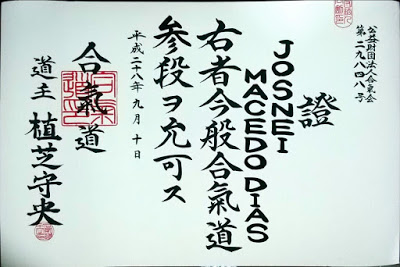 公益財団法人合氣会
第二九八四八号
證
JOSNEI
MACEDO DIAS
右者今般合氣道
参段ヲ允可ス
平成二十八年九月十日
合氣道
道主 植芝守央